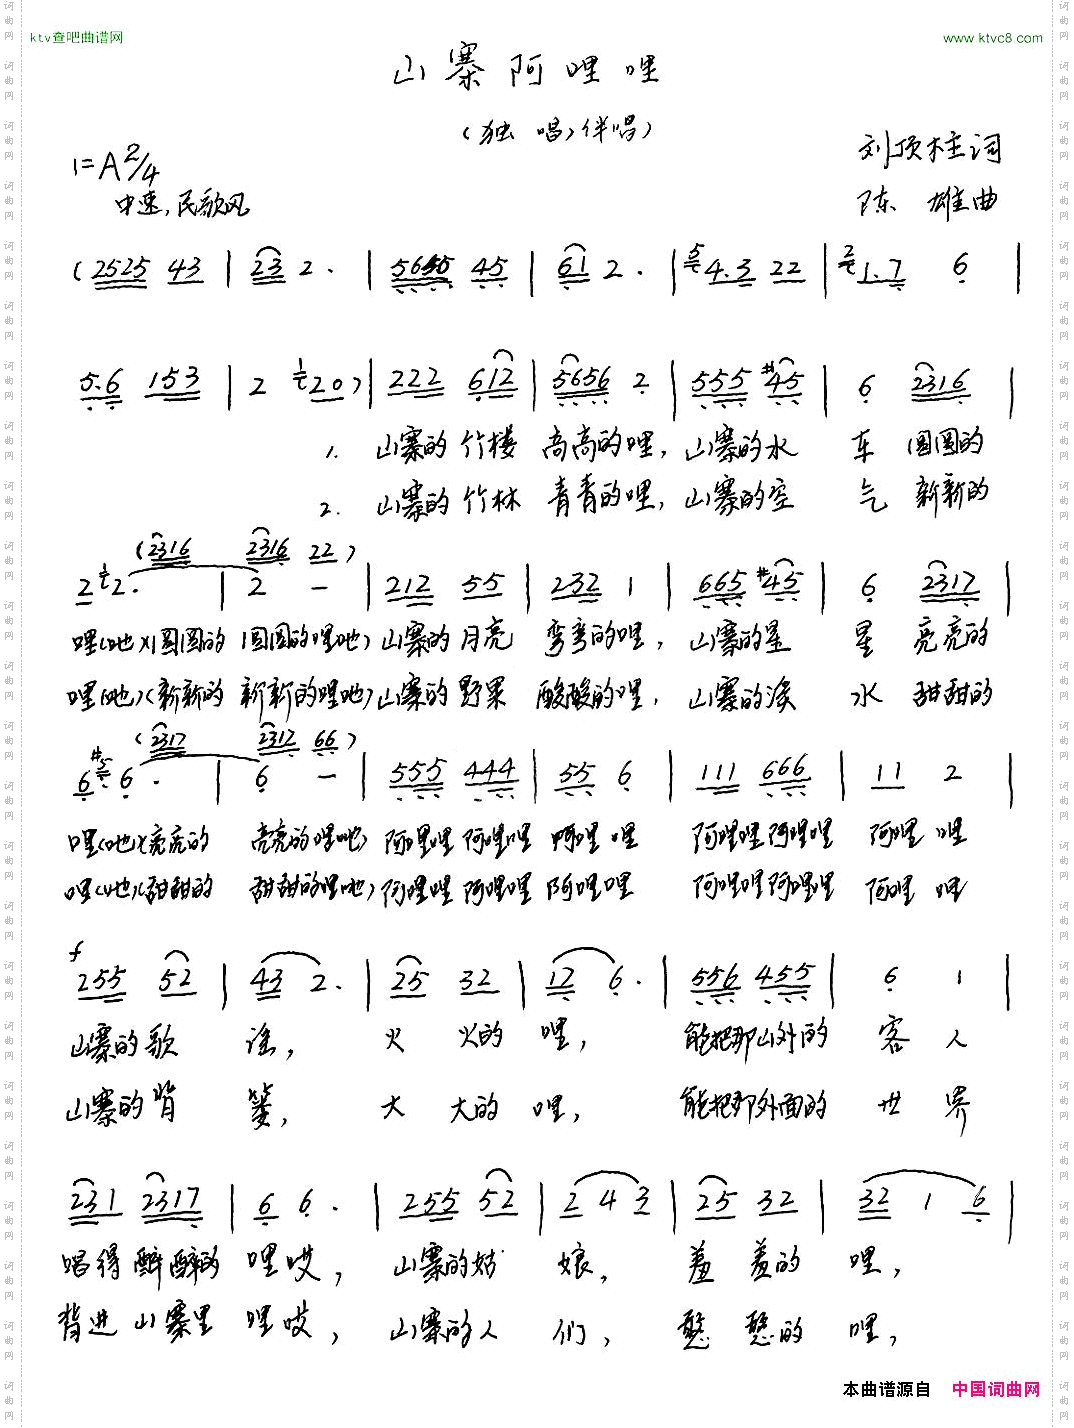 ktv查吧曲谱网
www.ktvc8.com
山寨阿哩哩
(独唱、伴唱)
1=A 2/4
刘顶柱词
中速,民歌风
陈雄曲
(2525 43 | 23 2. | 5645 45 | 61 2. | 5 4.3 22 | 2 1.7 6 |
5.6 153 | 2 1 20) | 222 612 | 5656 2 | 555 #45 | 6 2316 |
1. 山寨的竹楼 高高的哩, 山寨的水 车 圆圆的
2. 山寨的竹林 青青的哩, 山寨的空 气 新新的
(2316 2316 22)
2 1 2. | 2 - | 212 55 | 232 1 | 665 #45 | 6 2317 |
哩(吔)(圆圆的 圆圆的哩吔) 山寨的月亮 弯弯的哩, 山寨的星 星 亮亮的
哩(吔)(新新的 新新的哩吔) 山寨的野果 酸酸的哩, 山寨的溪 水 甜甜的
(2317 2317 66)
6 #5 6. | 6 - | 555 444 | 55 6 | 111 666 | 11 2 |
哩(吔)(亮亮的 亮亮的哩吔) 阿哩哩 阿哩哩 阿哩哩 阿哩哩 阿哩哩 阿哩 哩
哩(吔)(甜甜的 甜甜的哩吔) 阿哩哩 阿哩哩 阿哩哩 阿哩哩 阿哩哩 阿哩 哩
f
255 52 | 43 2. | 25 32 | 12 6. | 556 455 | 6 1 |
山寨的歌 谣, 火 火的 哩, 能把那山外的 客 人
山寨的背 篓, 大 大的 哩, 能把那外面的 世 界
231 2317 | 6 6. | 255 52 | 2 4 3 | 25 32 | 32 1 6 |
唱得醉醉的 哩哎, 山寨的姑 娘, 羞 羞的 哩,
背进山寨里 哩哎, 山寨的人 们, 憨 憨的 哩,
本曲谱源自 中国词曲网